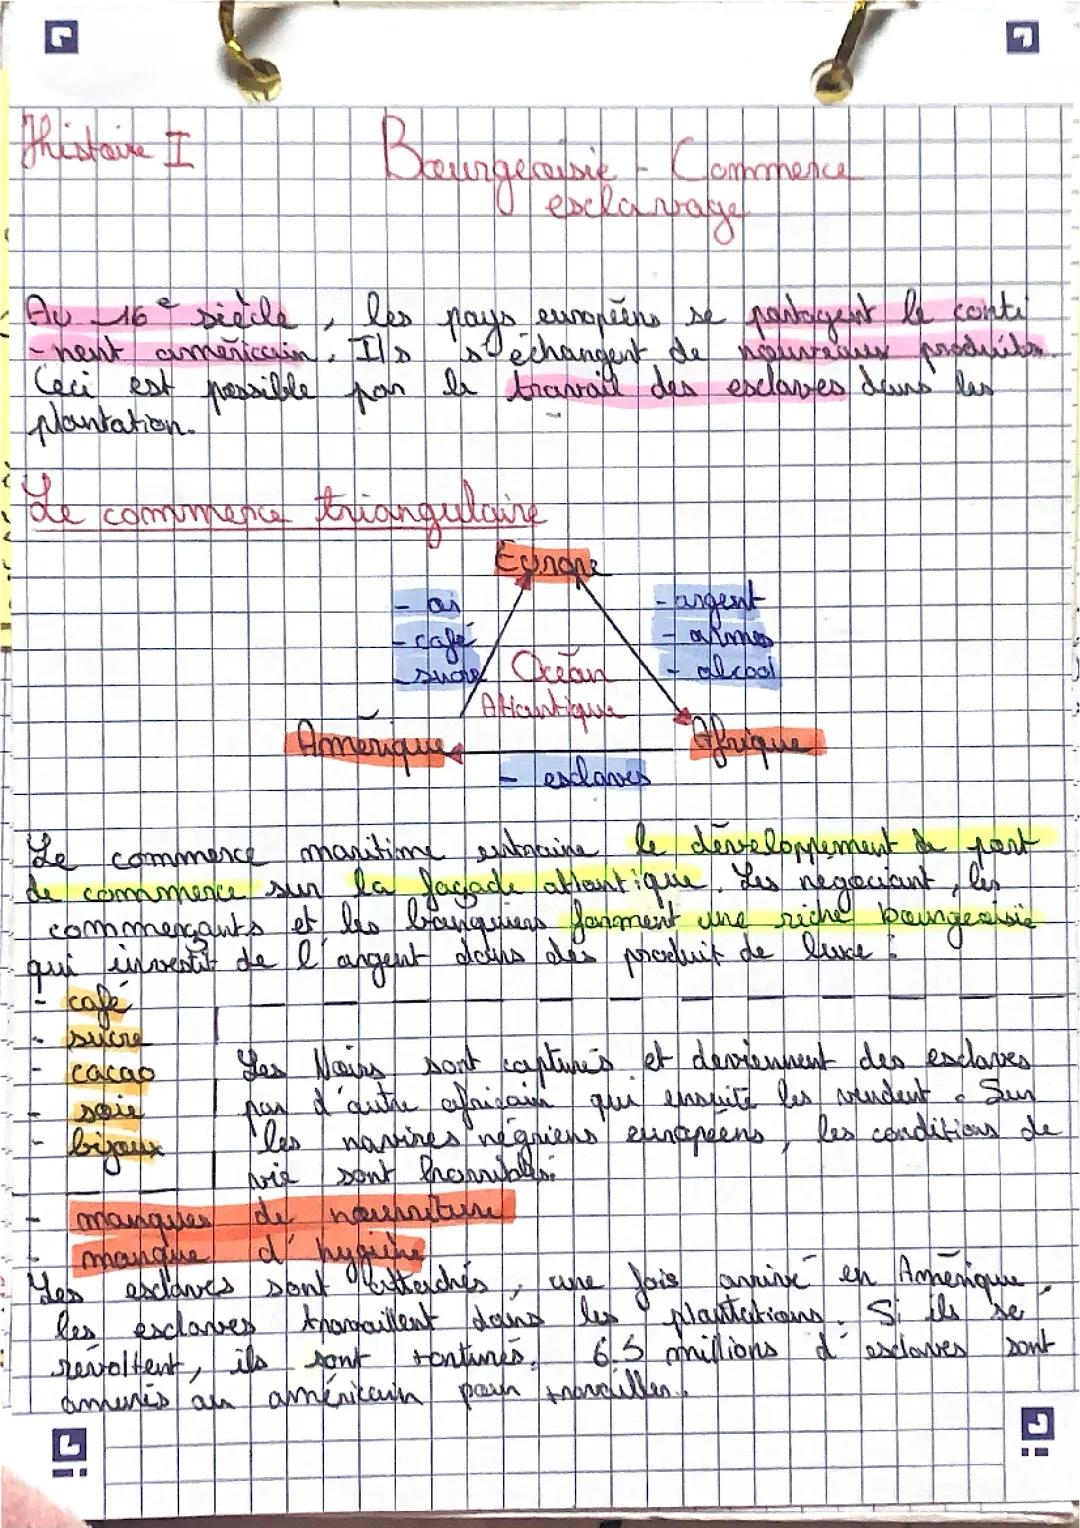 Histoire I
Bourgeoisie - Commerce
esclavage
Au 16e siècle, les pays européens se partagent le conti
-nent américain. Ils s'échangent de nouveaux produits.
Ceci est possible par le travail des esclaves dans les
plantation.
Le commerce triangulaire
Europe
- or
- café
- sucre
- argent
- armes
- alcool
Océan
Atlantique
Amérique
Afrique
- esclaves
Le commerce maritime entraine le développement de port
de commerce sur la façade atlantique. Les négociant, les
commerçants et les banquiers forment une riche bourgeoisie
qui investit de l'argent dans des produit de luxe :
- café
- sucre
- cacao
- soie
- bijoux
Les Noirs sont capturés et deviennent des esclaves
par d'autre africain qui ensuite les vendent. Sur
les navires négriers européens, les conditions de
vie sont horribles.
- manques de nourriture
- manque d'hygiène
Les esclaves sont attachés, une fois arrivé en Amérique,
les esclaves travaillent dans les plantations. Si ils se
révoltent, ils sont torturés. 6.5 millions d'esclaves sont
américain pour travailler.